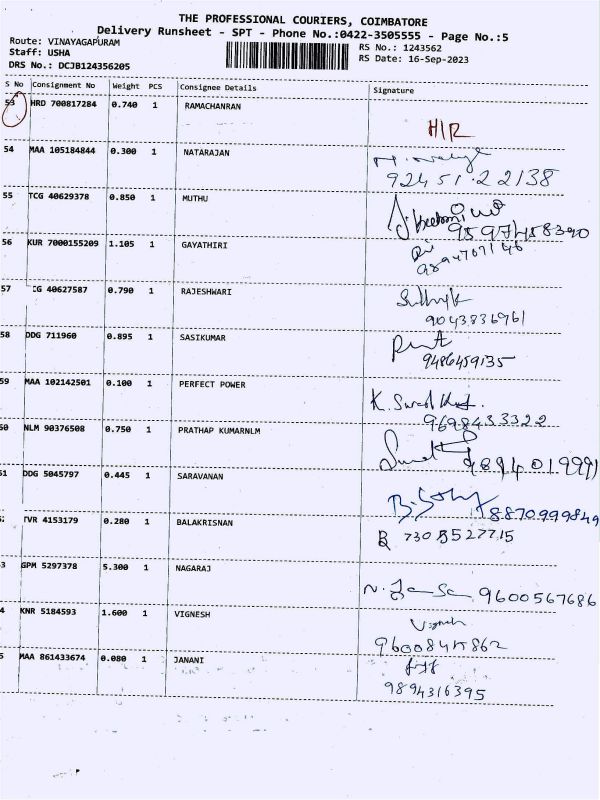 THE PROFESSIONAL COURIERS, COIMBATORE
Delivery Runsheet - SPT - Phone No.:0422-3505555 - Page No.:5
Route: VINAYAGAPURAM
Staff: USHA
DRS No.: DCJB124356205
RS No.: 1243562
RS Date: 16-Sep-2023
S No Consignment No Weight PCS Consignee Details Signature
53 HRD 700817284 0.740 1 RAMACHANRAN
H/R
54 MAA 105184844 0.300 1 NATARAJAN
92451 22138
55 TCG 40629378 0.850 1 MUTHU
9597458390
56 KUR 7000155209 1.105 1 GAYATHIRI
9894767146
57 CG 40627587 0.790 1 RAJESHWARI
9043836961
58 DDG 711960 0.895 1 SASIKUMAR
9486459135
59 MAA 102142501 0.100 1 PERFECT POWER
9698433322
50 NLM 90376508 0.750 1 PRATHAP KUMARNLM
9894019991
51 DDG 5045797 0.445 1 SARAVANAN
8870999849
TVR 4153179 0.280 1 BALAKRISNAN
3 GPM 5297378 5.300 1 NAGARAJ
9600567686
4 KNR 5184593 1.600 1 VIGNESH
Vignesh
5 MAA 861433674 0.080 1 JANANI
9894316395